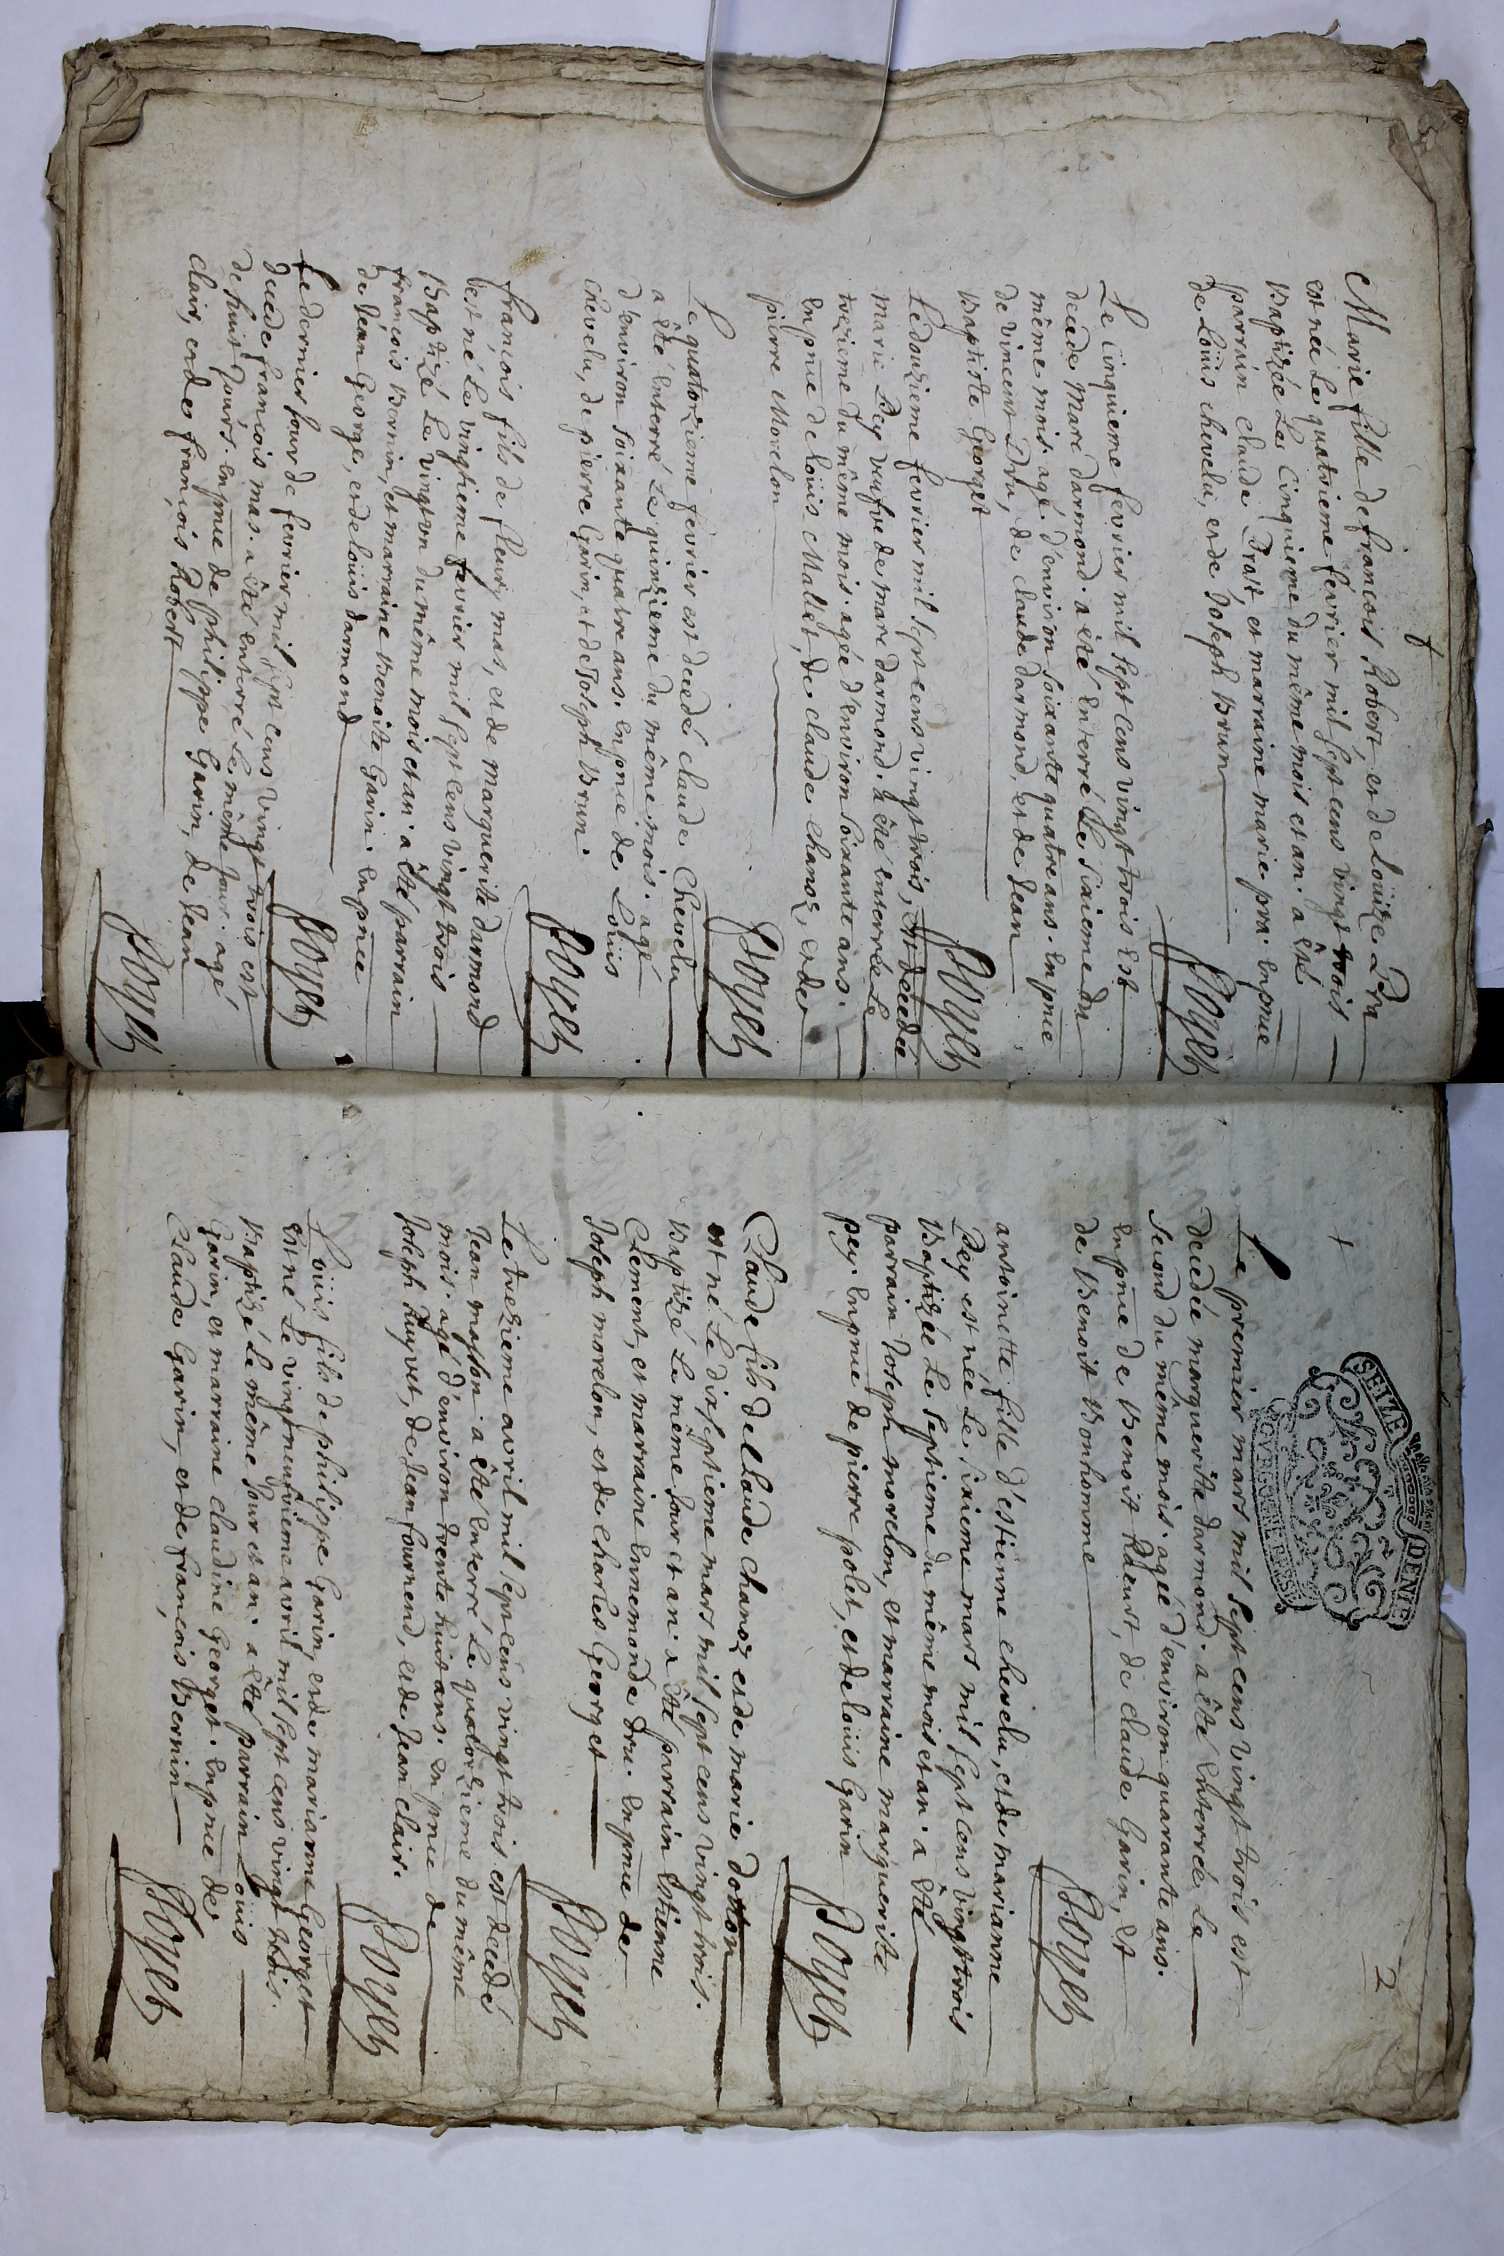 Marie fille de francois Robert, et de Loüize Dru
est née Le quatrieme février mil sept cens vingt trois
Baptizée Le Cinquieme du même mois et an. a êté
parrain claude Drait, et marraine marie pra. en pnce
de Loüis chevelu, et de Joseph Brun
Poyet
Le cinquieme fevrier mil sept cens vingt trois est
decedé Marc darmond. a êté enterré Le sixieme du
même mois. agé d'environ soixante quatre ans. en pnce
de vincent Dru, de claude darmond, et de Jean
Baptiste Georget
Poyet
Le douzieme fevrier mil sept cens vingt trois, est decedée
Marie Pey veufve de marc darmond. a êté enterrée Le
trezieme du même mois. agée d'environ soixante ans.
en pnce de Loüis Mallet, de claude chanoz, et de
pierre Morelon
Poyet
Le quatorzieme février est decedé claude Chevelu
a êté enterré Le quinzieme du même mois. agé
d'environ soixante quatre ans. en pnce de Loüis
chevelu, de pierre Garin, et de Joseph Brun.
Poyet
françois fils de fleury mas, et de marguerite darmond
est né Le vingtieme fevrier mil sept cens vingt trois
Baptizé Le vingt un du même mois et an. a êté parrain
francois Bernin, et marraine Benoite Garin. en pnce
de Jean George, et de Loüis darmond
Poyet
Le dernier Jour de fevrier mil sept cens vingt trois est
decedé francois mas. a êté enterré Le même Jour. agé
de huit Jours. en pnce de philippe Garin, de Jean
clair, et de françois Robert
Poyet
2
SEIZE DENIE
Le premier mars mil sept cens vingt trois est
decedée marguerite darmond. a êté enterrée Le
second du même mois. agée d'environ quarante ans.
en pnce de Benoit Rdeurt, de claude Garin, et
de Benoit Bonhomme
Poyet
antoinette fille d'estienne chevelu, et de marianne
Pey est née Le sixieme mars mil sept cens vingt trois
Baptizée Le septieme du même mois et an. a êté
parrain Joseph morelon, et marraine marguerite
pey. en pnce de pierre polet, et de Loüis Garin
Poyet
Claude fils de Claude chanoz et de marie dotton
est né Le dixseptieme mars mil sept cens vingt trois.
Baptizé Le même Jour et an. a êté parrain Estienne
Clement, et marraine ennemonde dru. en pnce de
Joseph morelon, et de charles Georget
Poyet
Le trezieme avril mil sept cens vingt trois est decedé
Jean masson. a êté enterré Le quatorzieme du même
mois. agé d'environ trente huit ans. en pnce de
Joseph Ruyvet, de Jean fournend, et de Jean clair.
Poyet
Loüis fils de philippe Garin, et de marianne Georget
est né Le vingt neufvieme avril mil sept cens vingt trois.
Baptizé Le même Jour et an. a êté parrain Loüis
Garin, et marraine claudine Georget. en pnce de
Claude Garin, et de françois Bernin
Poyet